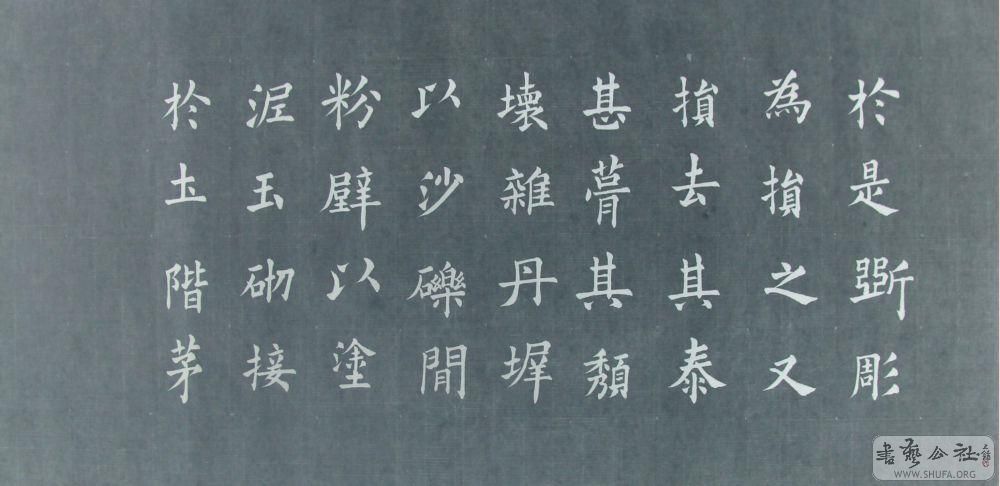 於是斲彫
為損之又
損去其泰
甚葺其頽
壞雜丹墀
以沙礫閒
粉壁以塗
泥玉砌接
於土階茅
書藝公社
WWW.SHUFA.ORG